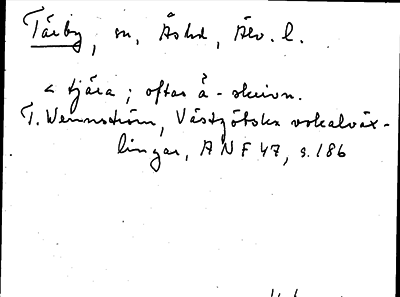 Tärby, sn, Åshd, Älv. l.
< tjära ; oftas å - skrivn.
T. Wennström, Västgötska vokalväx-
lingar, ANF 47, s. 186